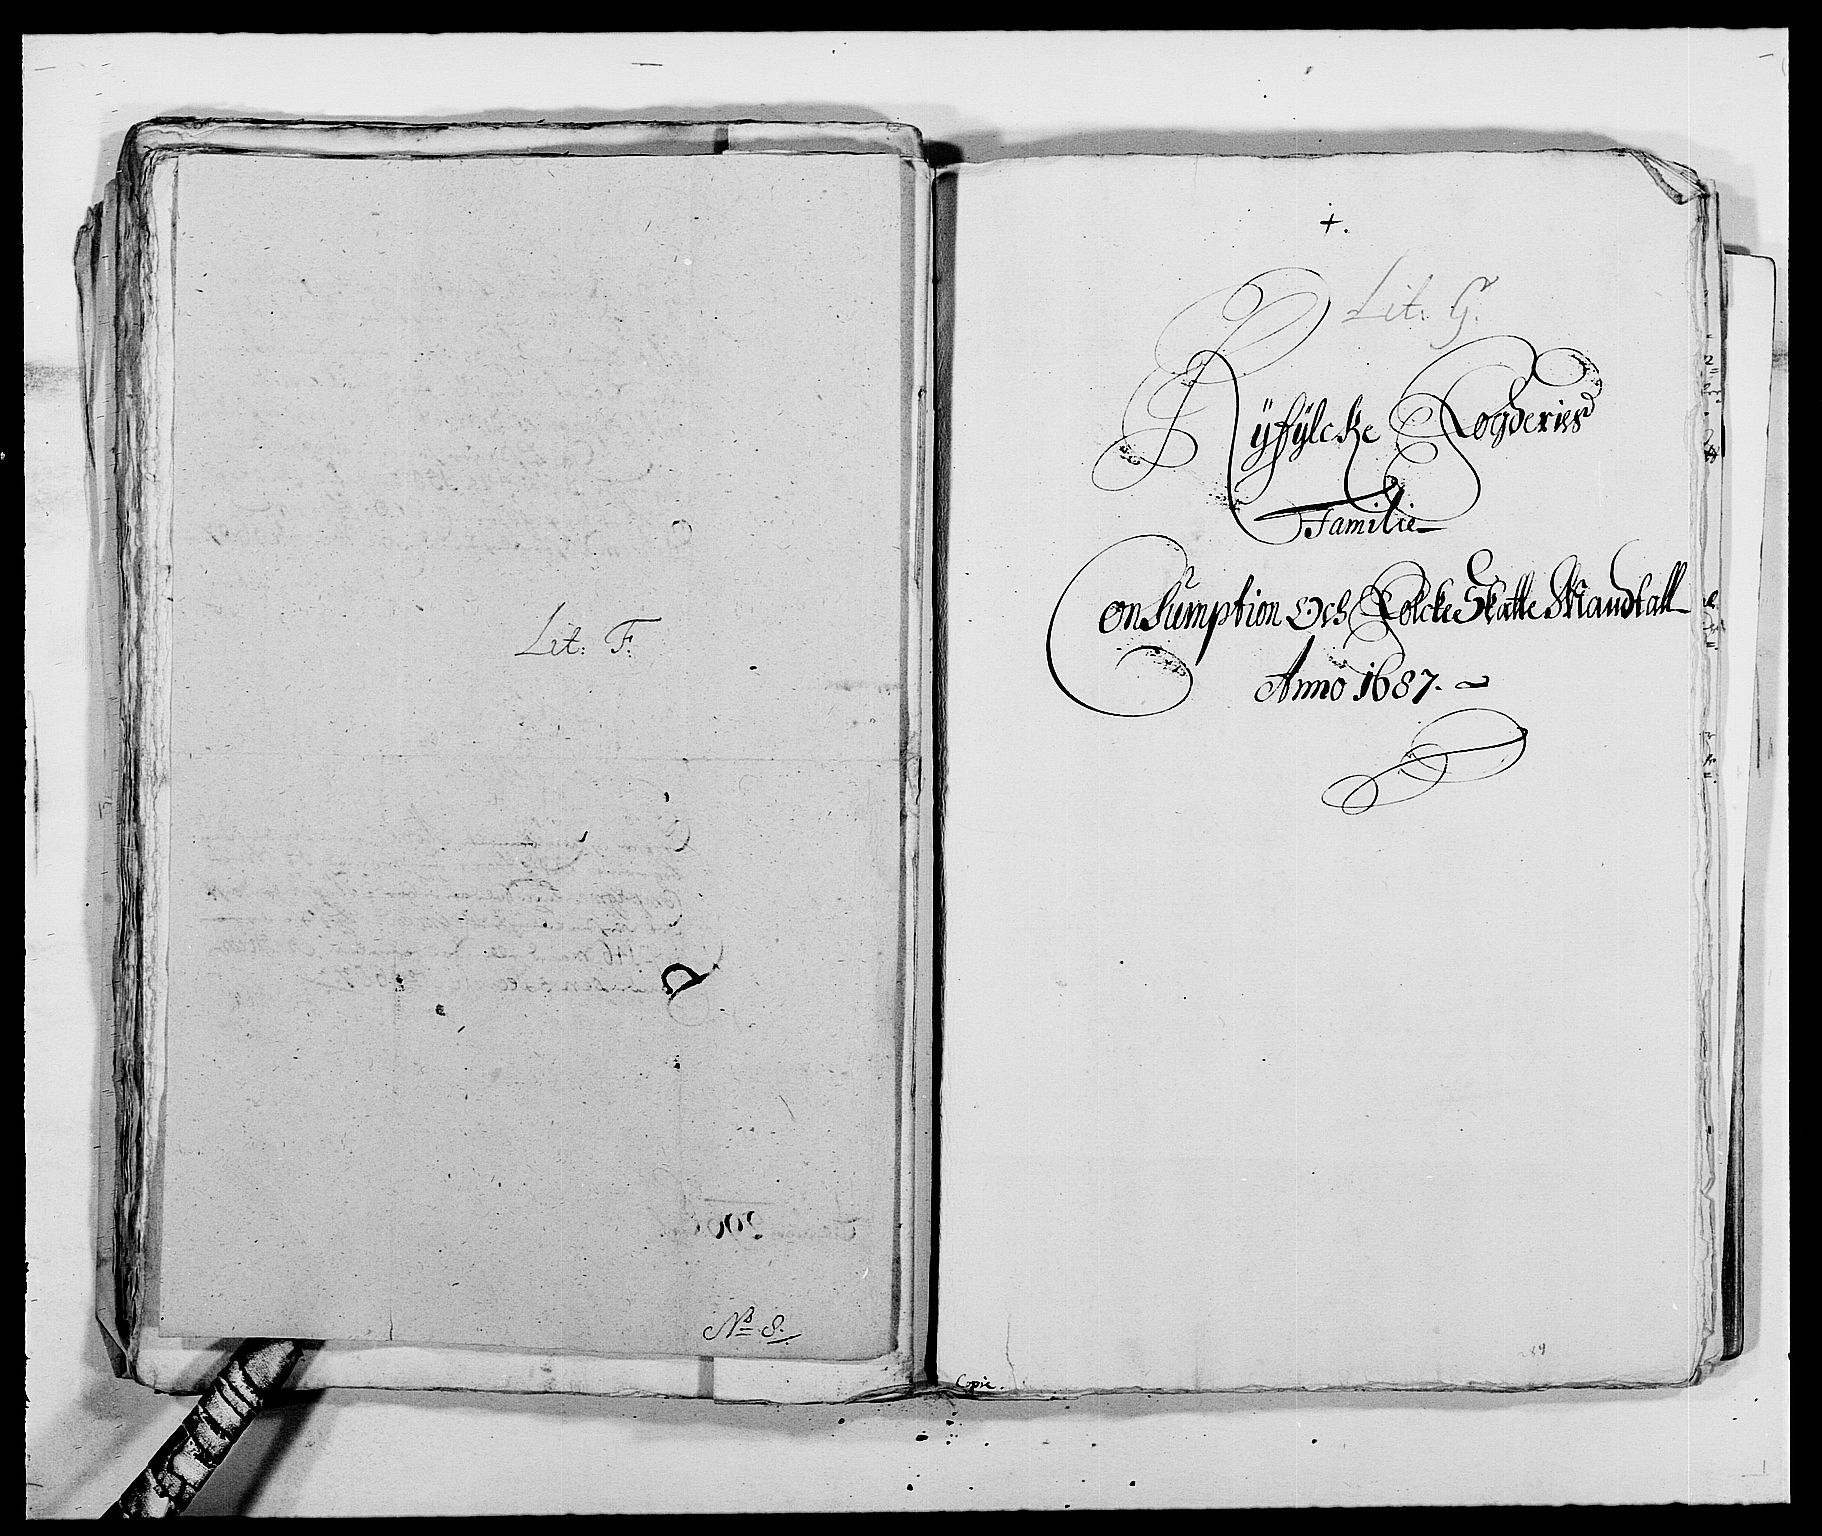 Lit: F.
No 8.
+.
Lit. G.
Ryfylcke Fogderies
Familie
Consumption Och Folcke Skatte Mandtall
Anno 1687.
Copie.